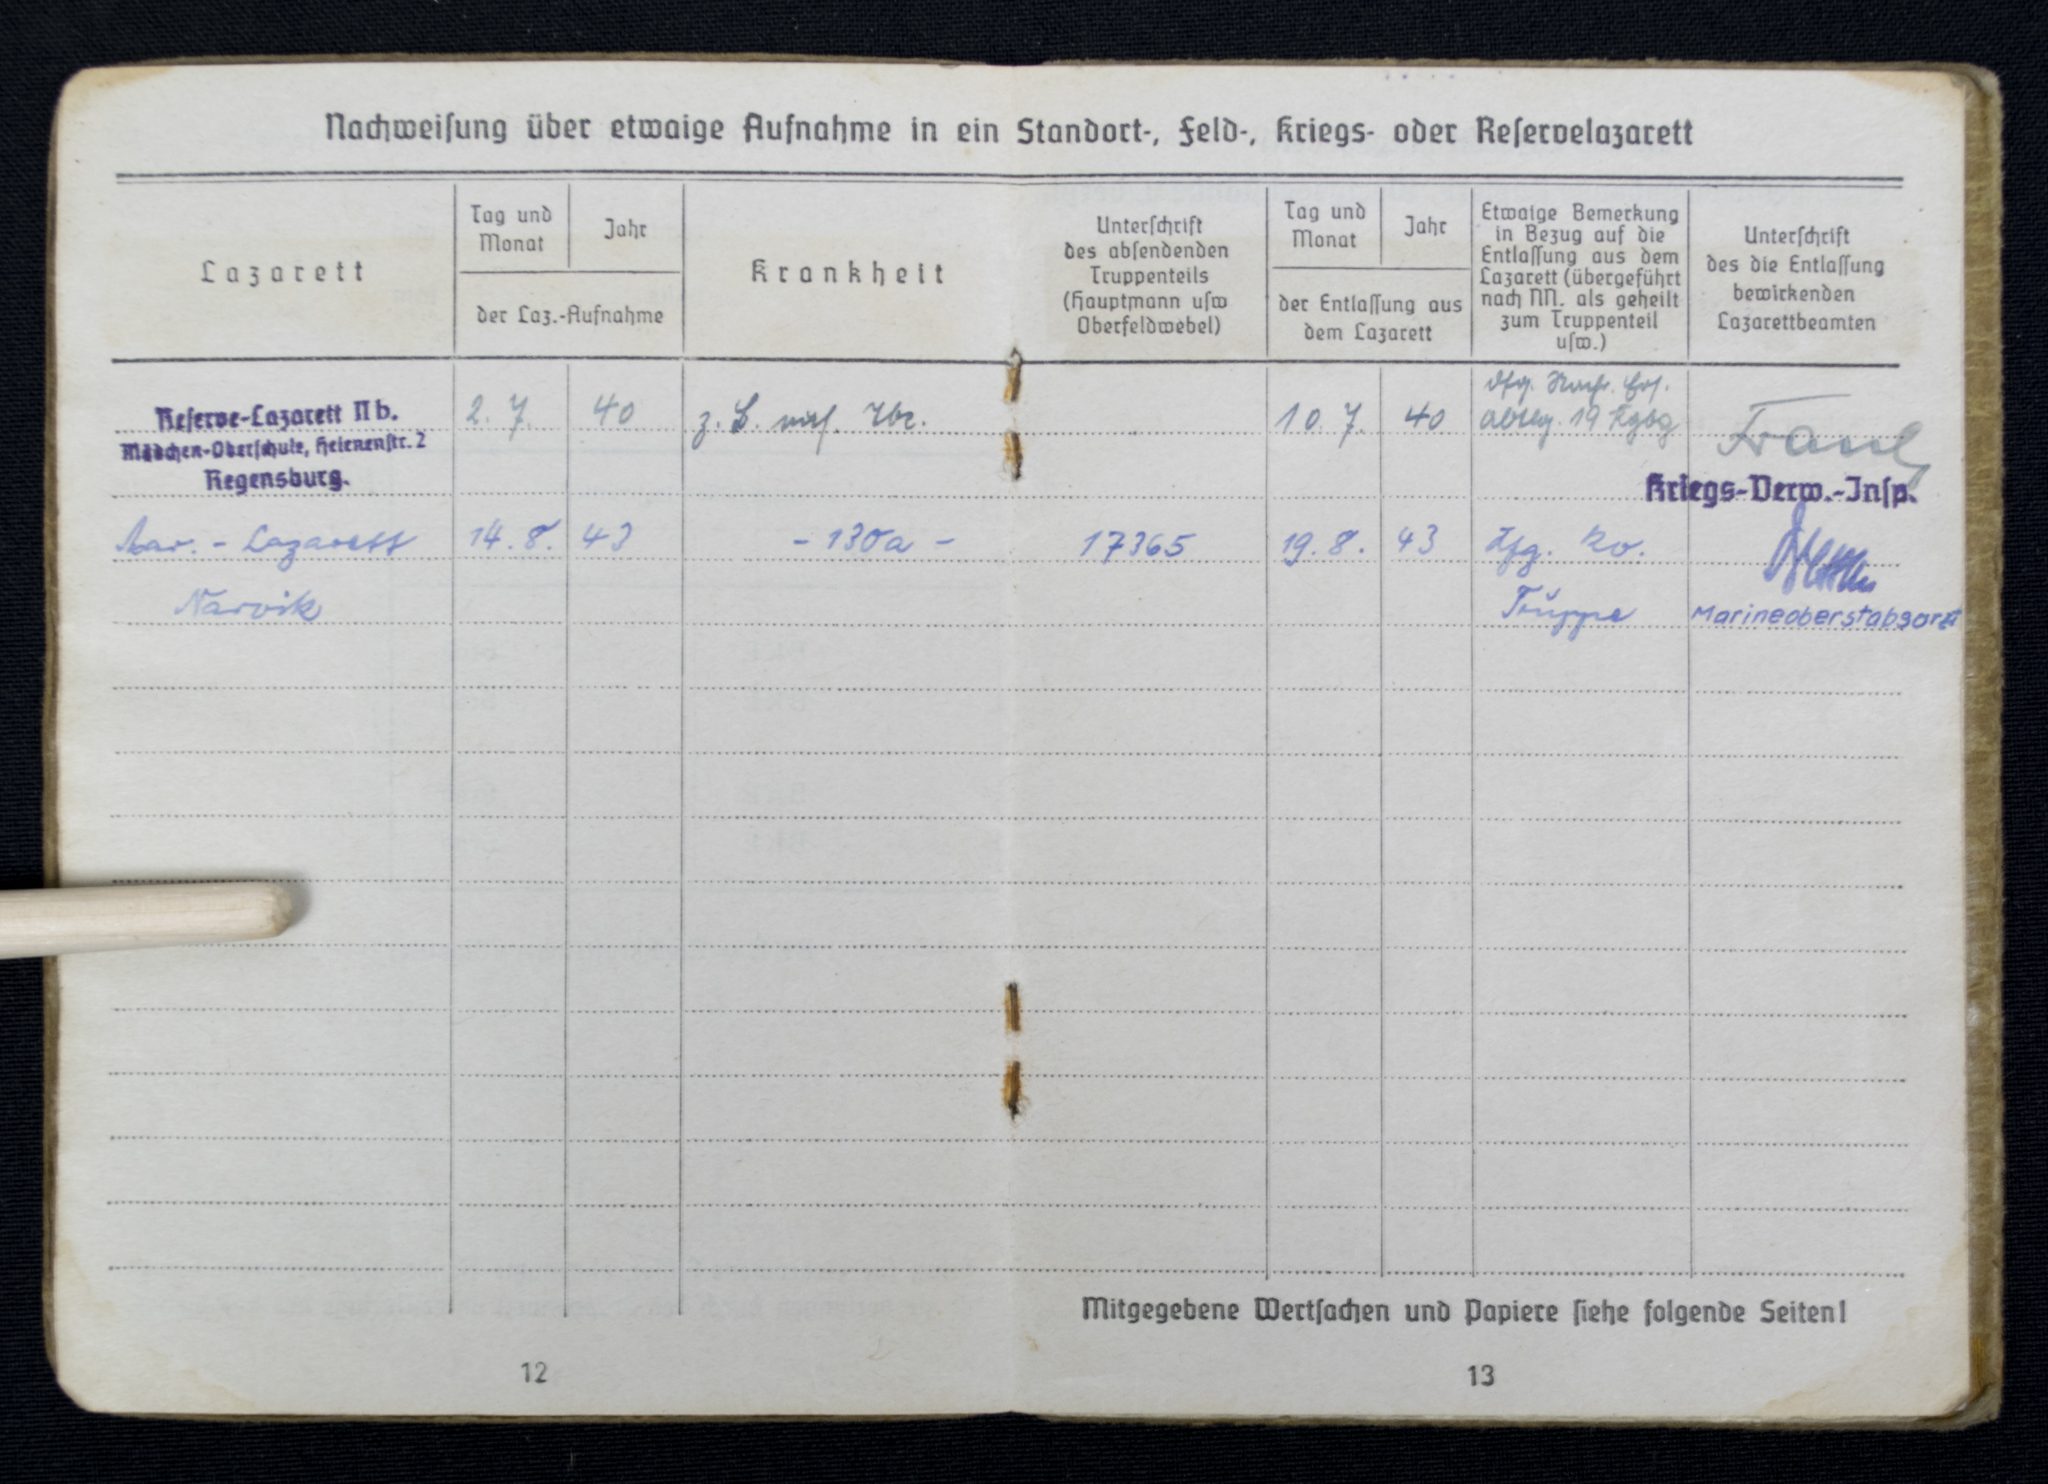 Nachweisung über etwaige Aufnahme in ein Standort-, Feld-, Kriegs- oder Reservelazarett
Lazarett
Tag und
Monat
Jahr
der Laz.-Aufnahme
Krankheit
Unterschrift
des absendenden
Truppenteils
(Hauptmann usw
Oberfeldwebel)
Tag und
Monat
Jahr
der Entlassung aus
dem Lazarett
Etwaige Bemerkung
in Bezug auf die
Entlassung aus dem
Lazarett (übergeführt
nach NN. als geheilt
zum Truppenteil
usw.)
Unterschrift
des die Entlassung
bewirkenden
Lazarettbeamten
Reserve-Lazarett II b.
Mädchen-Oberschule, Helenenstr. 2
Regensburg.
2. 7. 40
z. B.
10. 7. 40
19
Kriegs-Verw.-Insp.
Mar. - Lazarett 14. 8. 43 - 130a - 17365 19. 8. 43
Narvik
Truppe
Marineoberstabsarzt
Mitgegebene Wertsachen und Papiere siehe folgende Seiten!
12
13